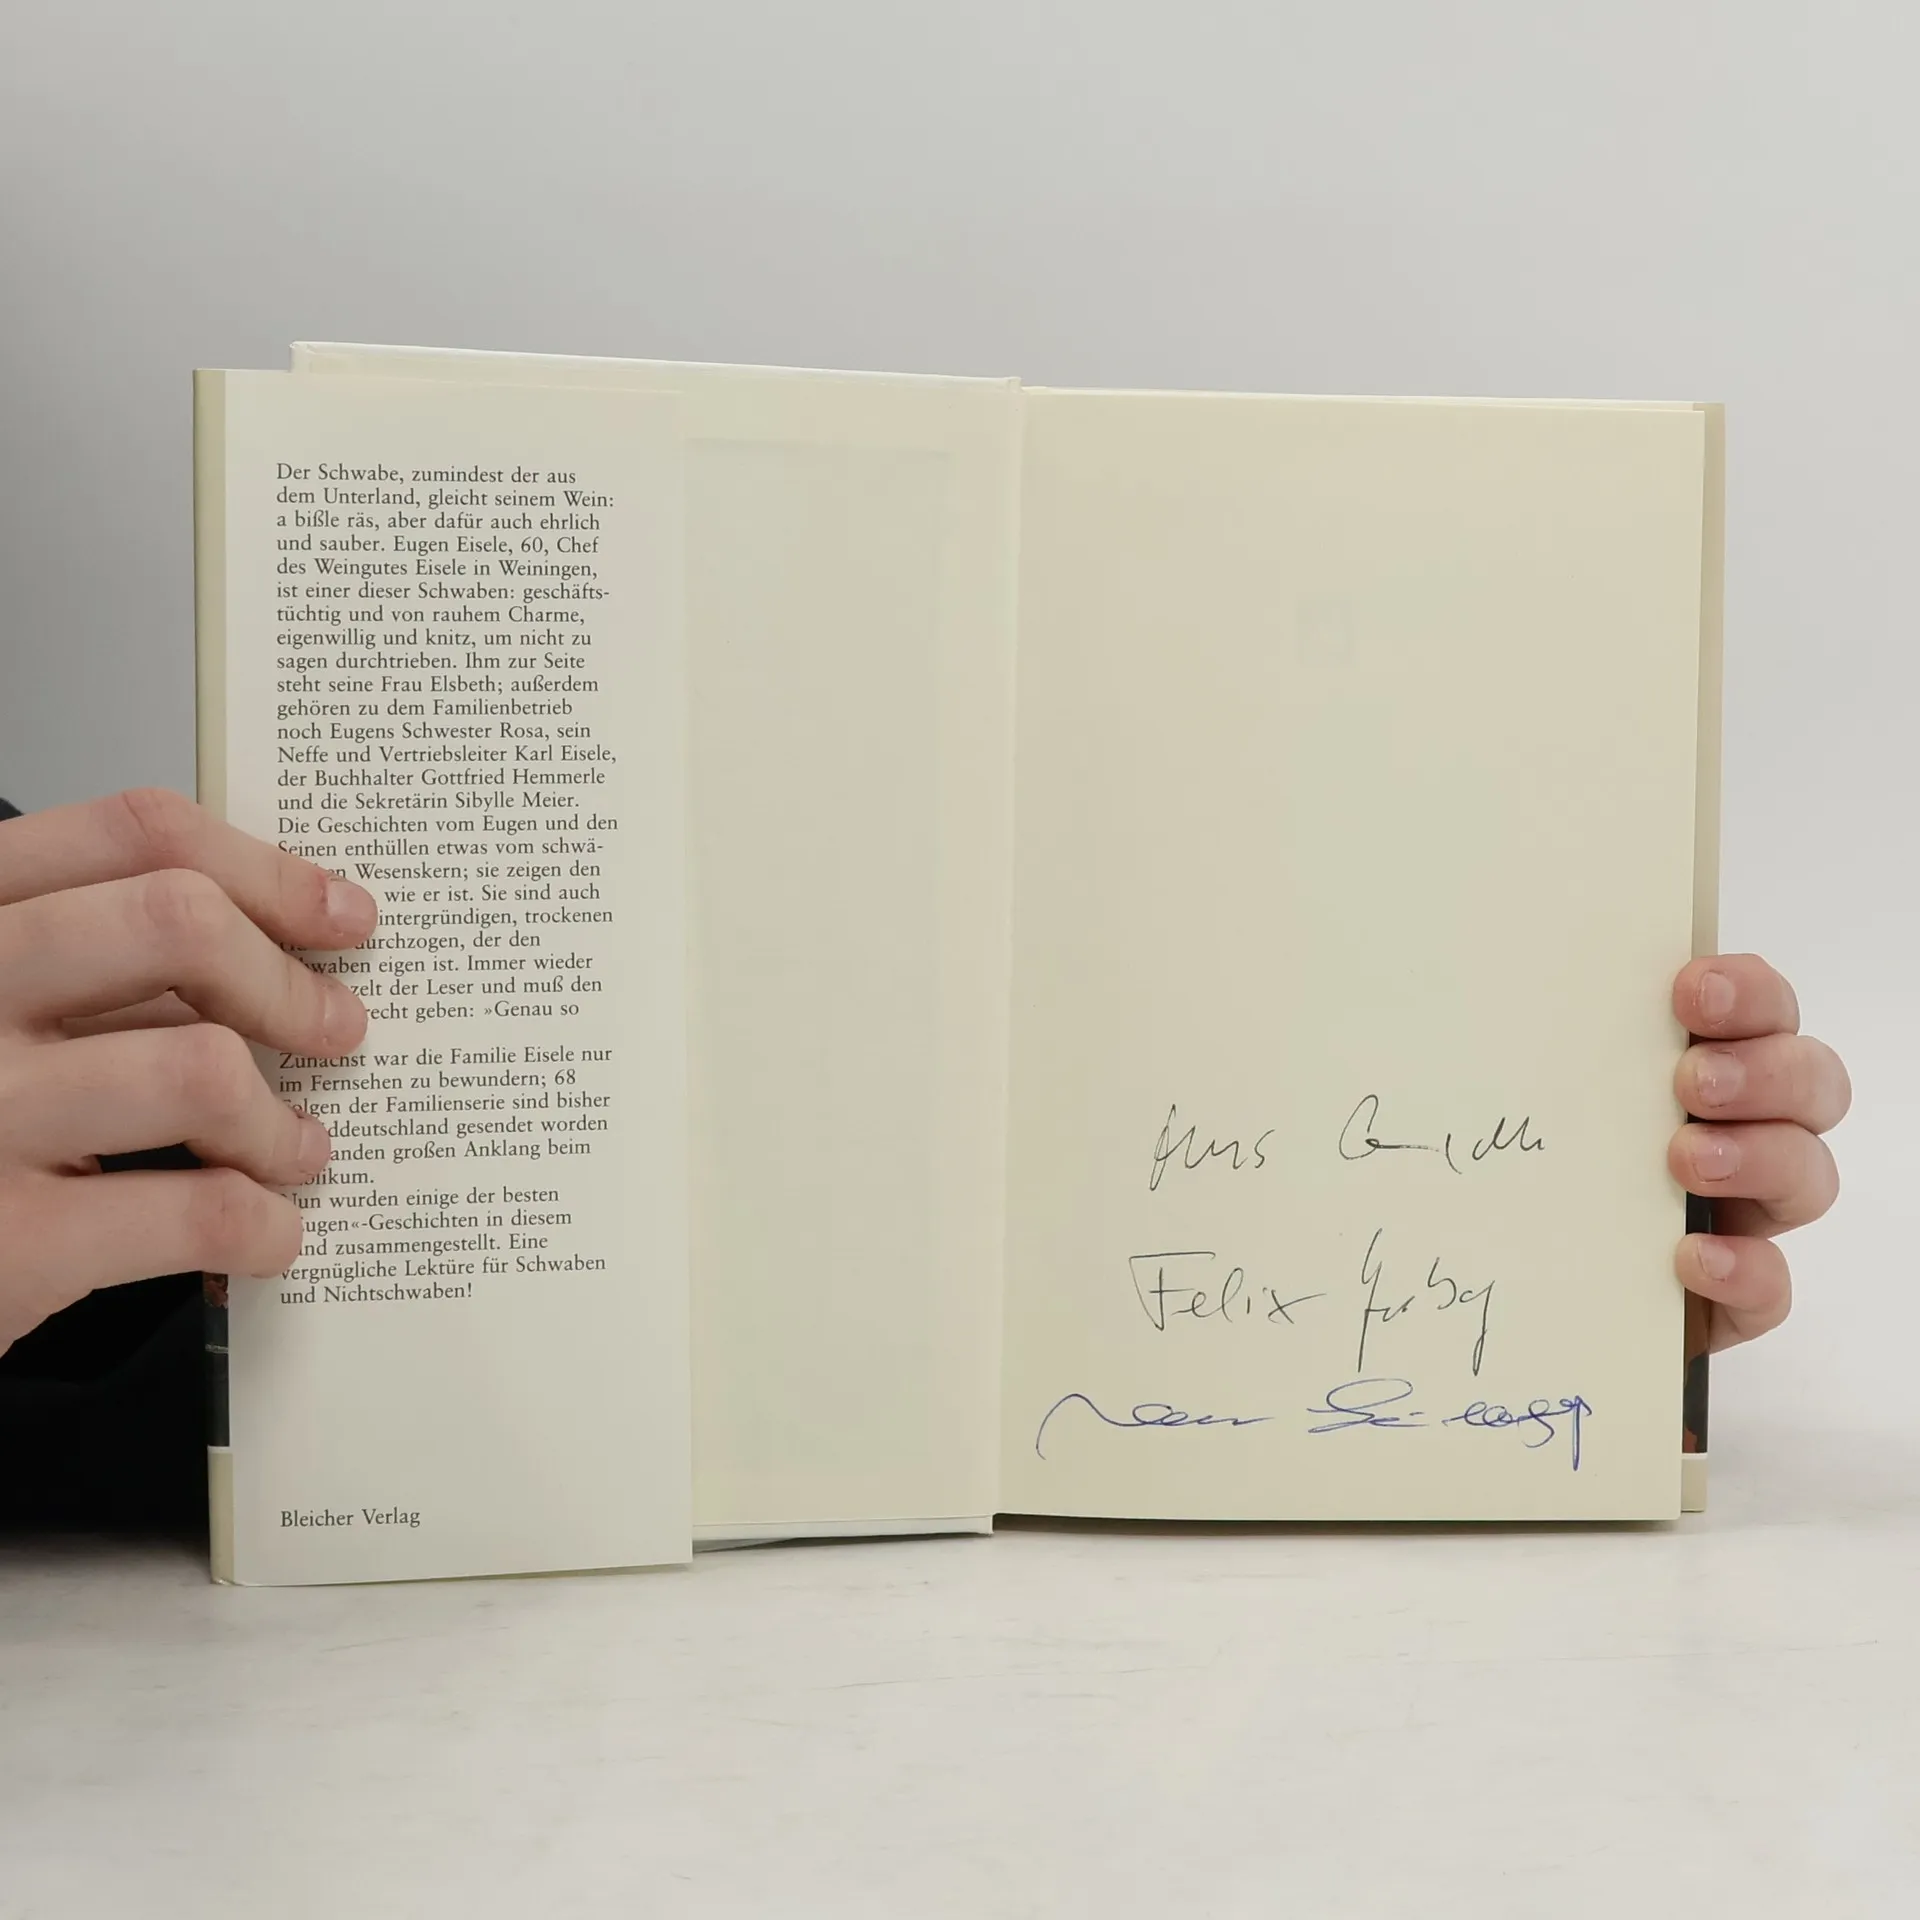 Der Schwabe, zumindest der aus
dem Unterland, gleicht seinem Wein:
a bißle räs, aber dafür auch ehrlich
und sauber. Eugen Eisele, 60, Chef
des Weingutes Eisele in Weiningen,
ist einer dieser Schwaben: geschäfts-
tüchtig und von rauhem Charme,
eigenwillig und knitz, um nicht zu
sagen durchtrieben. Ihm zur Seite
steht seine Frau Elsbeth; außerdem
gehören zu dem Familienbetrieb
noch Eugens Schwester Rosa, sein
Neffe und Vertriebsleiter Karl Eisele,
der Buchhalter Gottfried Hemmerle
und die Sekretärin Sibylle Meier.
Die Geschichten vom Eugen und den
Seinen enthüllen etwas vom schwä-
Wesenskern; sie zeigen den
wie er ist. Sie sind auch
intergründigen, trockenen
durchzogen, der den
waben eigen ist. Immer wieder
zelt der Leser und muß den
recht geben: »Genau so
Zunächst war die Familie Eisele nur
im Fernsehen zu bewundern; 68
olgen der Familienserie sind bisher
ddeutschland gesendet worden
anden großen Anklang beim
likum.
Nun wurden einige der besten
ugen«-Geschichten in diesem
and zusammengestellt. Eine
vergnügliche Lektüre für Schwaben
und Nichtschwaben!
Bleicher Verlag
Felix Huby